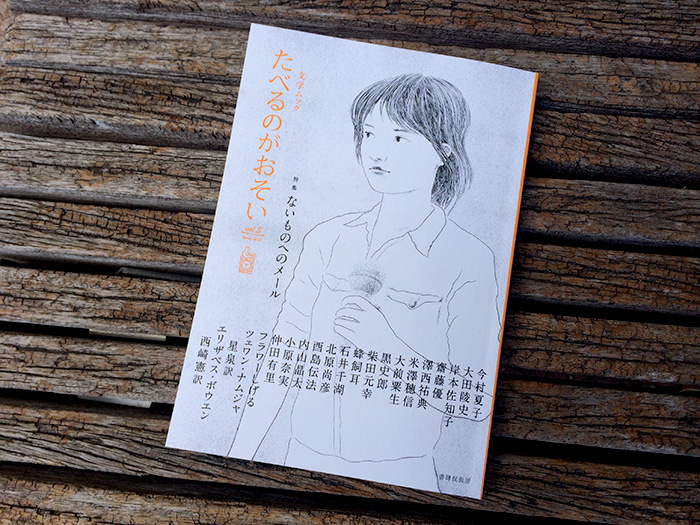 文学ムック
たべるのがおそい
vol.5
特集
ないものへのメール
今村夏子
大田陵史
岸本佐知子
齋藤優
澤西祐典
米澤穂信
大前粟生
黒史郎
柴田元幸
蜂飼耳
石井千湖
北原尚彦
酉島伝法
内山晶太
小原奈実
仲田有里
フラワーしげる
ツェワン・ナムジャ
星泉訳
エリザベス・ボウエン
西崎憲訳
書肆侃侃房